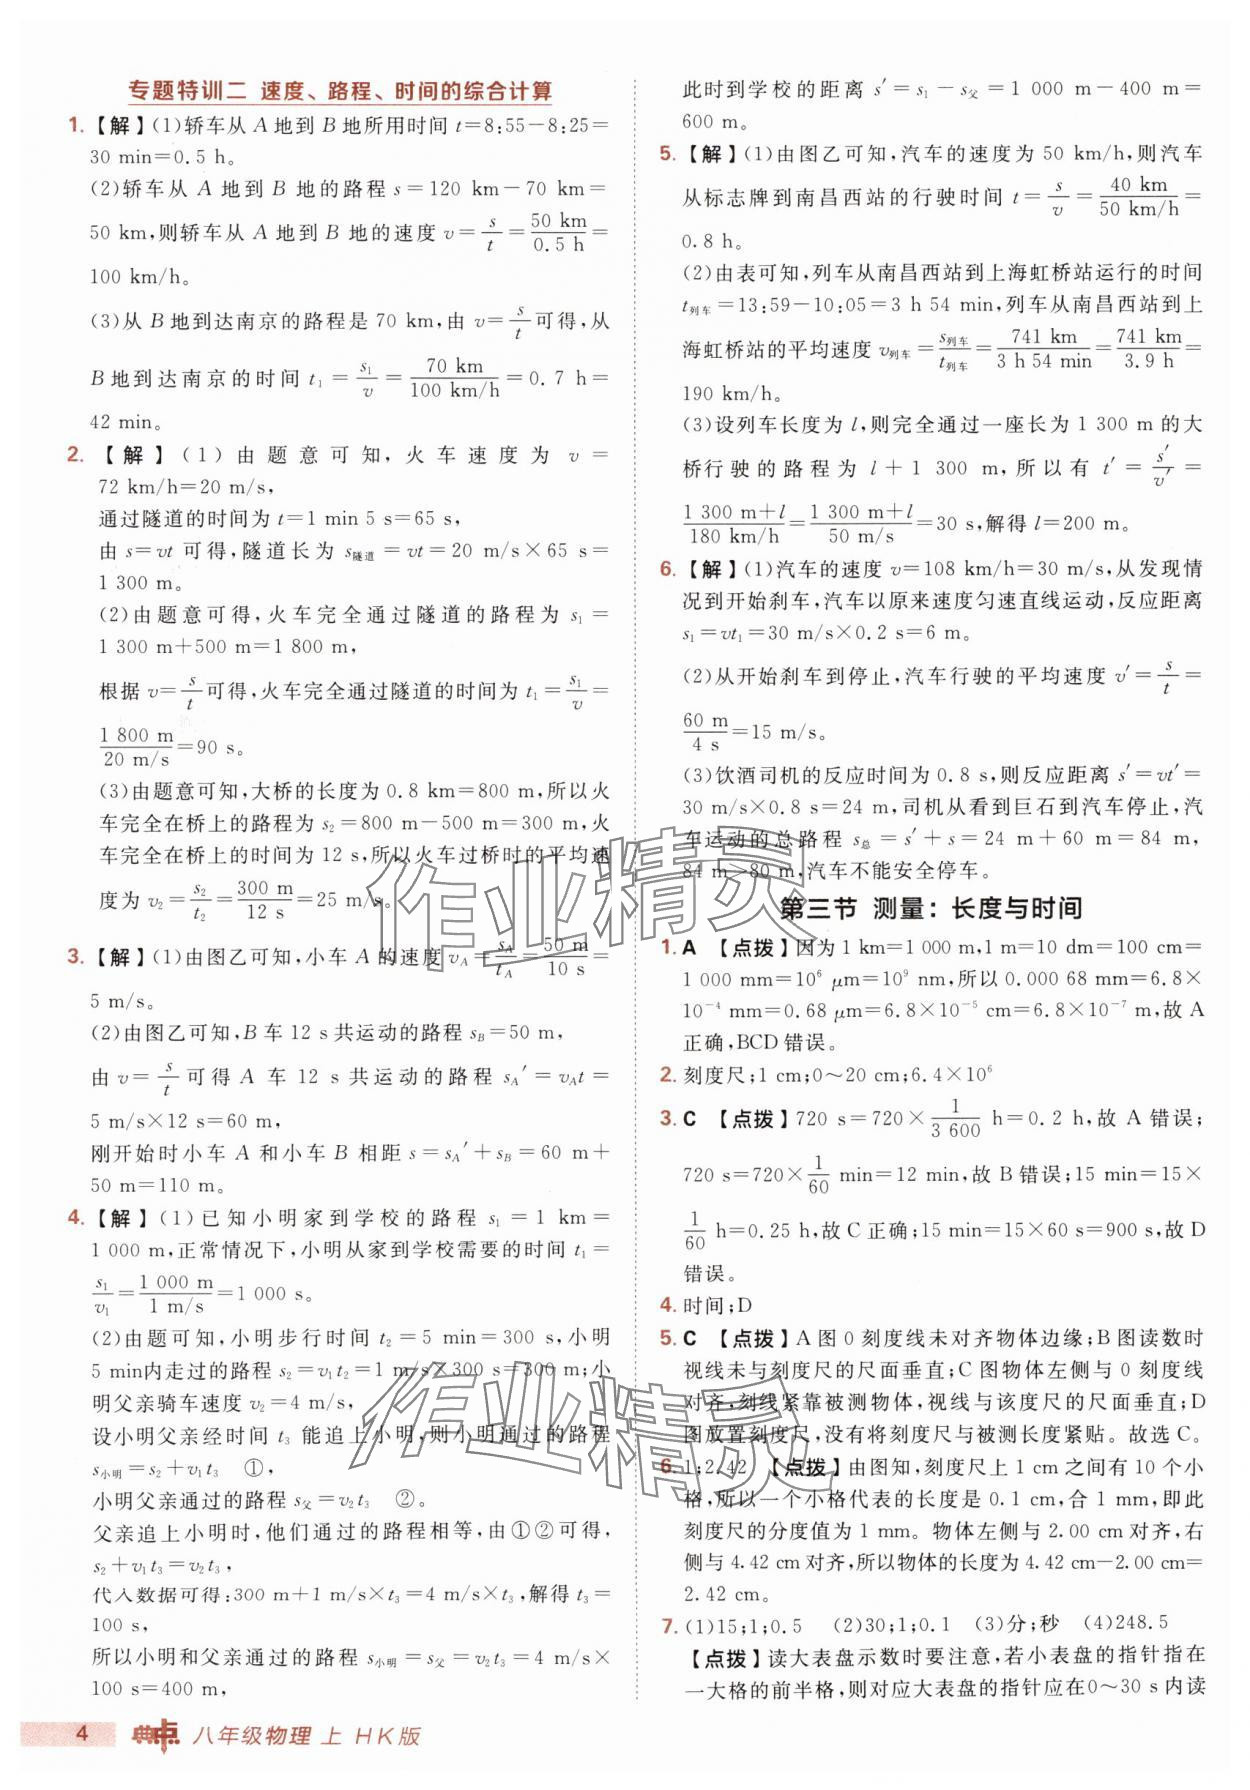 专题特训二 速度、路程、时间的综合计算
1.【解】(1)轿车从 A 地到 B 地所用时间 t=8:55-8:25=
30 min=0.5 h。
(2)轿车从 A 地到 B 地的路程 s=120 km-70 km=
50 km,则轿车从 A 地到 B 地的速度 v=s/t=50 km/0.5 h=
100 km/h。
(3)从 B 地到达南京的路程是 70 km,由 v=s/t 可得,从
B 地到达南京的时间 t₁=s₁/v=70 km/100 km/h=0.7 h=
42 min。
2.【解】(1)由题意可知,火车速度为 v=
72 km/h=20 m/s,
通过隧道的时间为 t=1 min 5 s=65 s,
由 s=vt 可得,隧道长为 s隧道=vt=20 m/s×65 s=
1 300 m。
(2)由题意可得,火车完全通过隧道的路程为 s₁=
1 300 m+500 m=1 800 m,
根据 v=s/t 可得,火车完全通过隧道的时间为 t₁=s₁/v=
1 800 m/20 m/s=90 s。
(3)由题意可知,大桥的长度为 0.8 km=800 m,所以火
车完全在桥上的路程为 s₂=800 m-500 m=300 m,火
车完全在桥上的时间为 12 s,所以火车过桥时的平均速
度为 v₂=s₂/t₂=300 m/12 s=25 m/s。
3.【解】(1)由图乙可知,小车 A 的速度 v_A=s_A/t_A=50 m/10 s=
5 m/s。
(2)由图乙可知,B 车 12 s 共运动的路程 s_B=50 m,
由 v=s/t 可得 A 车 12 s 共运动的路程 s_A′=v_At=
5 m/s×12 s=60 m,
刚开始时小车 A 和小车 B 相距 s=s_A′+s_B=60 m+
50 m=110 m。
4.【解】(1)已知小明家到学校的路程 s₁=1 km=
1 000 m,正常情况下,小明从家到学校需要的时间 t₁=
s₁/v₁=1 000 m/1 m/s=1 000 s。
(2)由题可知,小明步行时间 t₂=5 min=300 s,小明
5 min内走过的路程 s₂=v₁t₂=1 m/s×300 s=300 m;小
明父亲骑车速度 v₂=4 m/s,
设小明父亲经时间 t₃ 能追上小明,则小明通过的路程
s小明=s₂+v₁t₃ ①,
小明父亲通过的路程 s父=v₂t₃ ②。
父亲追上小明时,他们通过的路程相等,由①②可得,
s₂+v₁t₃=v₂t₃,
代入数据可得:300 m+1 m/s×t₃=4 m/s×t₃,解得 t₃=
100 s,
所以小明和父亲通过的路程 s小明=s父=v₂t₃=4 m/s×
100 s=400 m,
此时到学校的距离 s′=s₁-s父=1 000 m-400 m=
600 m。
5.【解】(1)由图乙可知,汽车的速度为 50 km/h,则汽车
从标志牌到南昌西站的行驶时间 t=s/v=40 km/50 km/h=
0.8 h。
(2)由表可知,列车从南昌西站到上海虹桥站运行的时间
t列车=13:59-10:05=3 h 54 min,列车从南昌西站到上
海虹桥站的平均速度 v列车=s列车/t列车=741 km/3 h 54 min=741 km/3.9 h=
190 km/h。
(3)设列车长度为 l,则完全通过一座长为 1 300 m 的大
桥行驶的路程为 l+1 300 m,所以有 t′=s′/v′=
1 300 m+l/180 km/h=1 300 m+l/50 m/s=30 s,解得 l=200 m。
6.【解】(1)汽车的速度 v=108 km/h=30 m/s,从发现情
况到开始刹车,汽车以原来速度匀速直线运动,反应距离
s₁=vt₁=30 m/s×0.2 s=6 m。
(2)从开始刹车到停止,汽车行驶的平均速度 v′=s/t=
60 m/4 s=15 m/s。
(3)饮酒司机的反应时间为 0.8 s,则反应距离 s′=vt′=
30 m/s×0.8 s=24 m,司机从看到巨石到汽车停止,汽
车运动的总路程 s总=s′+s=24 m+60 m=84 m,
84 m>80 m,汽车不能安全停车。
第三节 测量：长度与时间
1. A 【点拨】因为 1 km=1 000 m,1 m=10 dm=100 cm=
1 000 mm=10⁶ μm=10⁹ nm,所以 0.000 68 mm=6.8×
10⁻⁴ mm=0.68 μm=6.8×10⁻⁵ cm=6.8×10⁻⁷ m,故 A
正确,BCD 错误。
2. 刻度尺;1 cm;0~20 cm;6.4×10⁶
3. C 【点拨】720 s=720×1/3 600 h=0.2 h,故 A 错误;
720 s=720×1/60 min=12 min,故 B 错误;15 min=15×
1/60 h=0.25 h,故 C 正确;15 min=15×60 s=900 s,故 D
错误。
4. 时间;D
5. C 【点拨】A 图 0 刻度线未对齐物体边缘;B 图读数时
视线未与刻度尺的尺面垂直;C 图物体左侧与 0 刻度线
对齐,刻线紧靠被测物体,视线与该度尺的尺面垂直;D
图放置刻度尺,没有将刻度尺与被测长度紧贴。故选 C。
6. 1;2.42 【点拨】由图知,刻度尺上 1 cm 之间有 10 个小
格,所以一个小格代表的长度是 0.1 cm,合 1 mm,即此
刻度尺的分度值为 1 mm。物体左侧与 2.00 cm 对齐,右
侧与 4.42 cm 对齐,所以物体的长度为 4.42 cm-2.00 cm=
2.42 cm。
7. (1)15;1;0.5 (2)30;1;0.1 (3)分;秒 (4)248.5
【点拨】读大表盘示数时要注意,若小表盘的指针指在
一大格的前半格,则对应大表盘的指针应在0~30 s内读
4 典中点 八年级物理 上 HK版
作业精灵
作业精灵